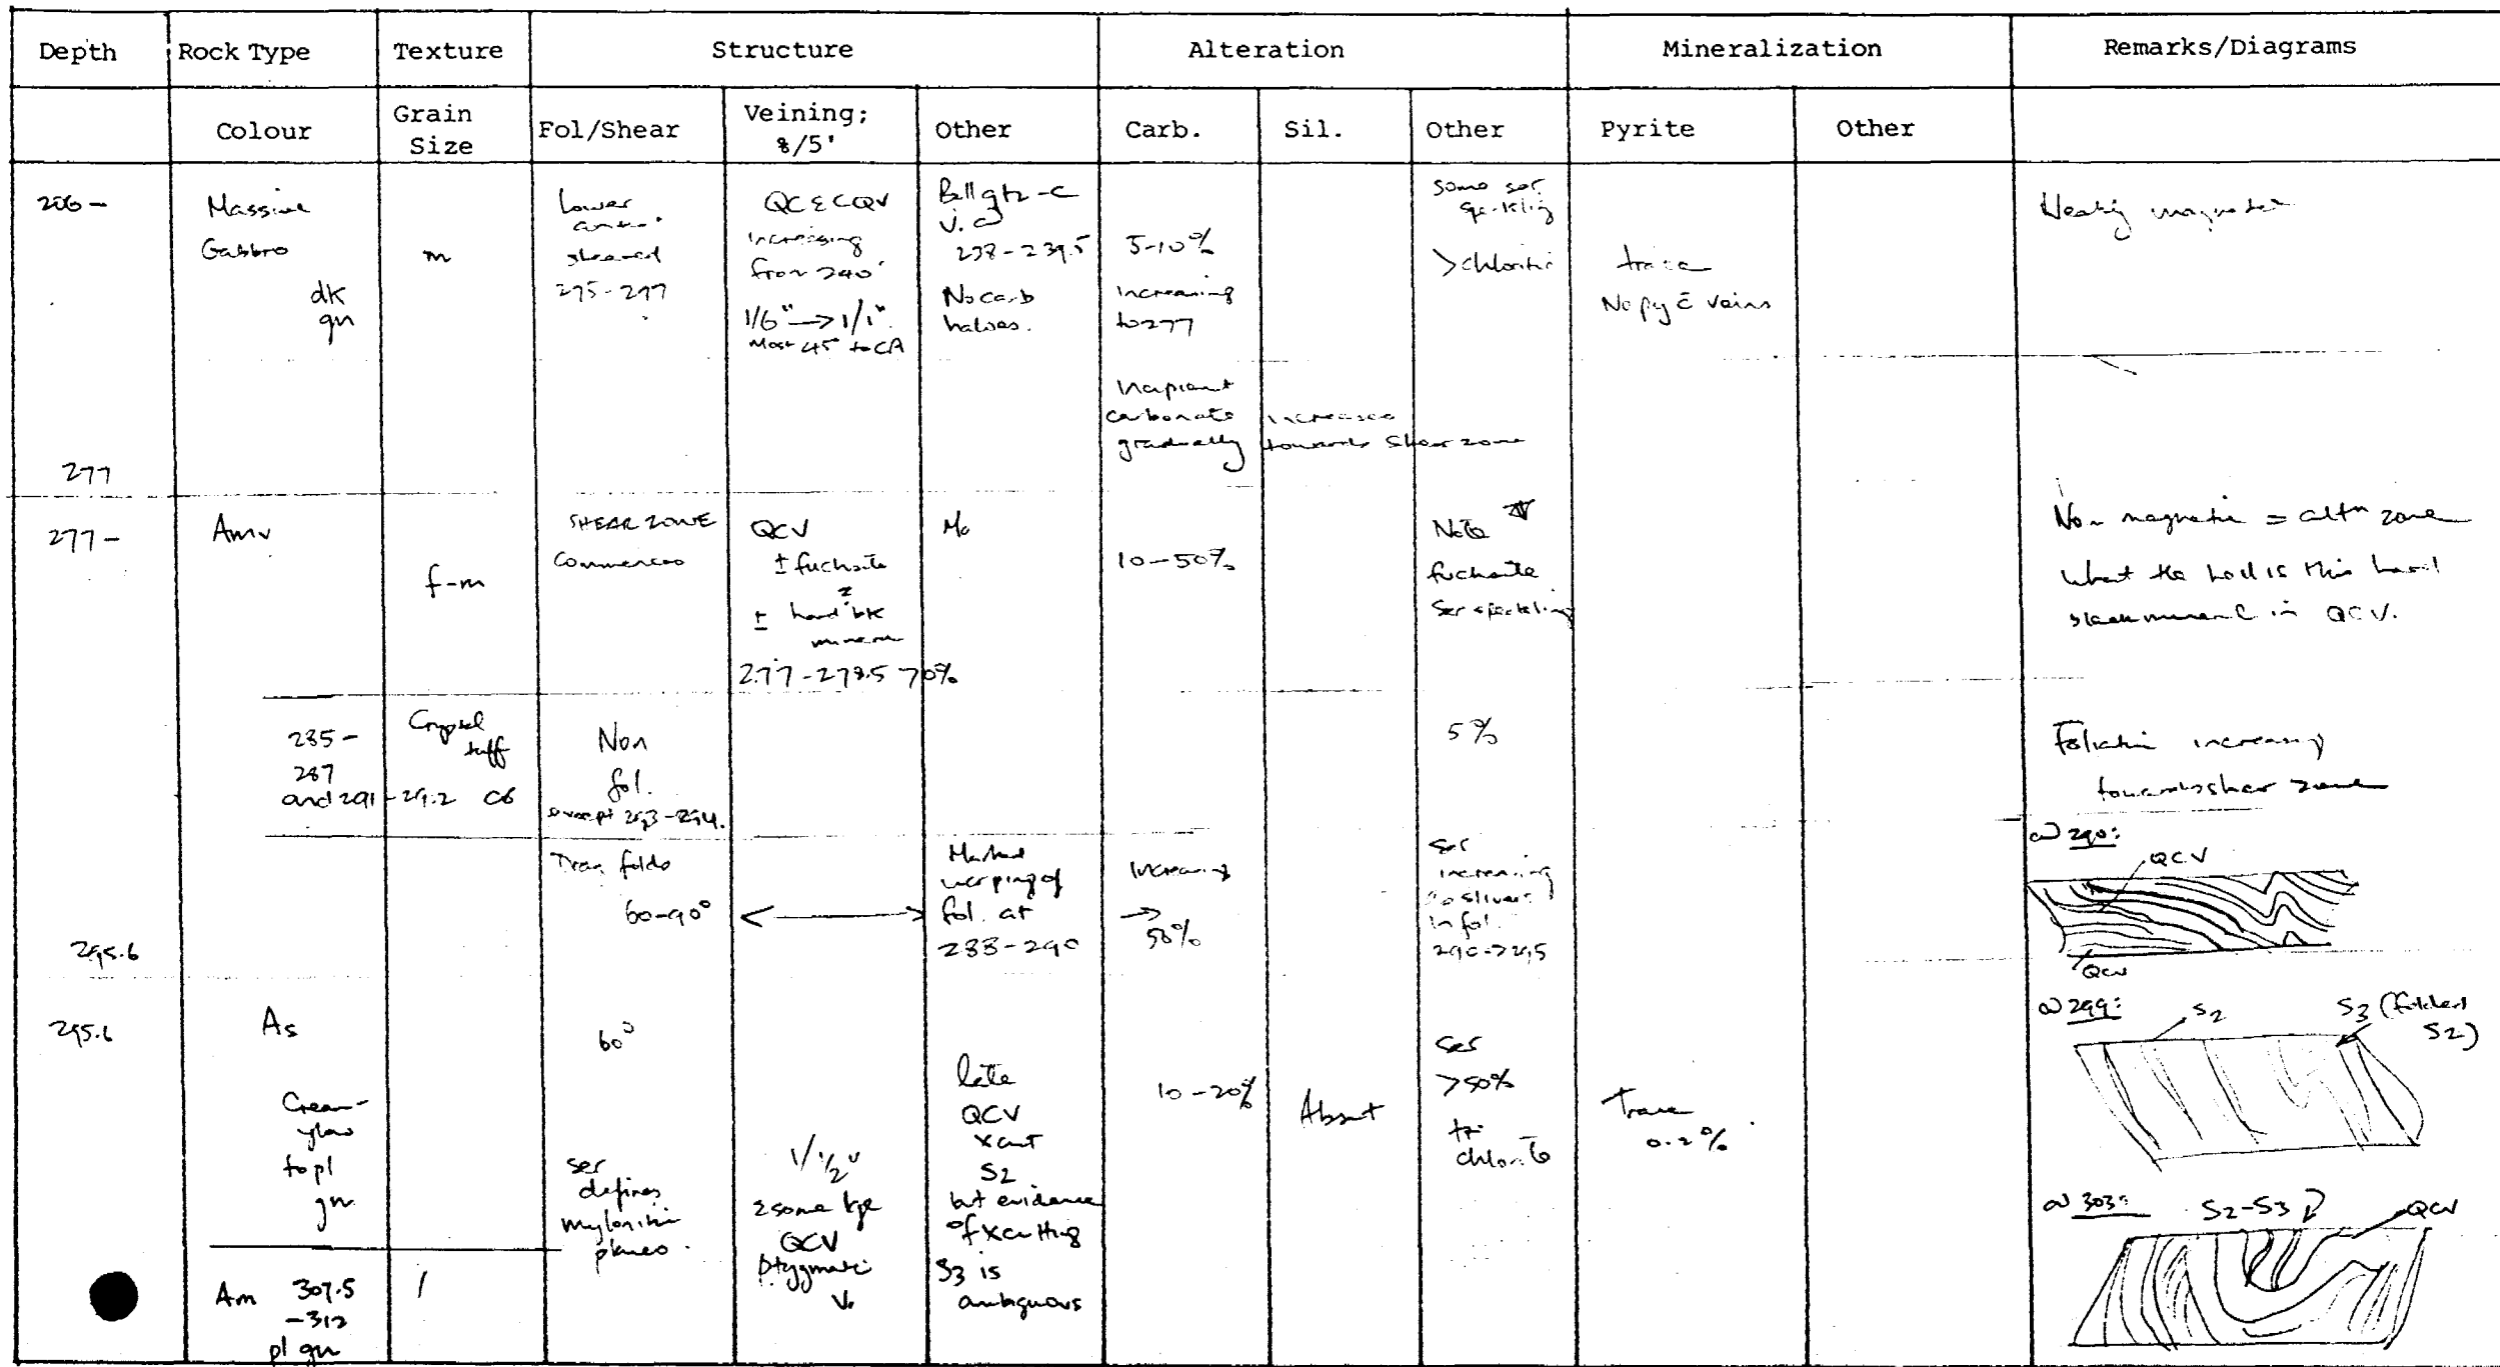 Depth Rock Type Texture Structure Alteration Mineralization Remarks/Diagrams
Colour Grain Size Fol/Shear Veining; %/5' Other Carb. Sil. Other Pyrite Other
Massive
Gabbro
dk
gn
m
Lower
sheared
275-277
QC & CQV
increasing
from 240'
1/6" → 1/1"
Most 45° to CA
238-239.5
No carb
haloes.
5-10%
increasing
to 277
some ser
>chloritic
trace
No py c̄ veins
Weakly magnetic
Incipient
carbonate increases
gradually towards shear zone
277
277-
Amv
f-m
SHEAR ZONE
Commences
QCV
± fuchsite
± hard bk
mineral
277-278.5 70%
10-50%
Note
fuchsite
ser speckling
Non magnetic = altn zone
What the hell is this hard
black mineral in QCV.
285-
287
and 291-29.2
Crystal
tuff
Non
fol.
except 293-294.
5%
Foliation increasing
towards shear zone
Drag folds
60-90°
Marked
warping of
fol. at
288-290
Increasing
→
50%
ser
increasing
to slivers
in fol.
290-295
@ 290:
QCV
QCV
295.6
295.6
As
Cream-
ylow
to pl
gn
60°
ser
defines
mylonitic
planes.
1/½"
QCV
ptygmatic
late
QCV
xcut
S2
but evidence
of xcutting
S3 is
ambiguous
10-20%
Absent
ser
>50%
tr
chlorite
Trace
0.2%
@ 299:
S2
S3 (folded
S2)
@ 303:
S2-S3
QCV
Am 307.5
-312
pl gn